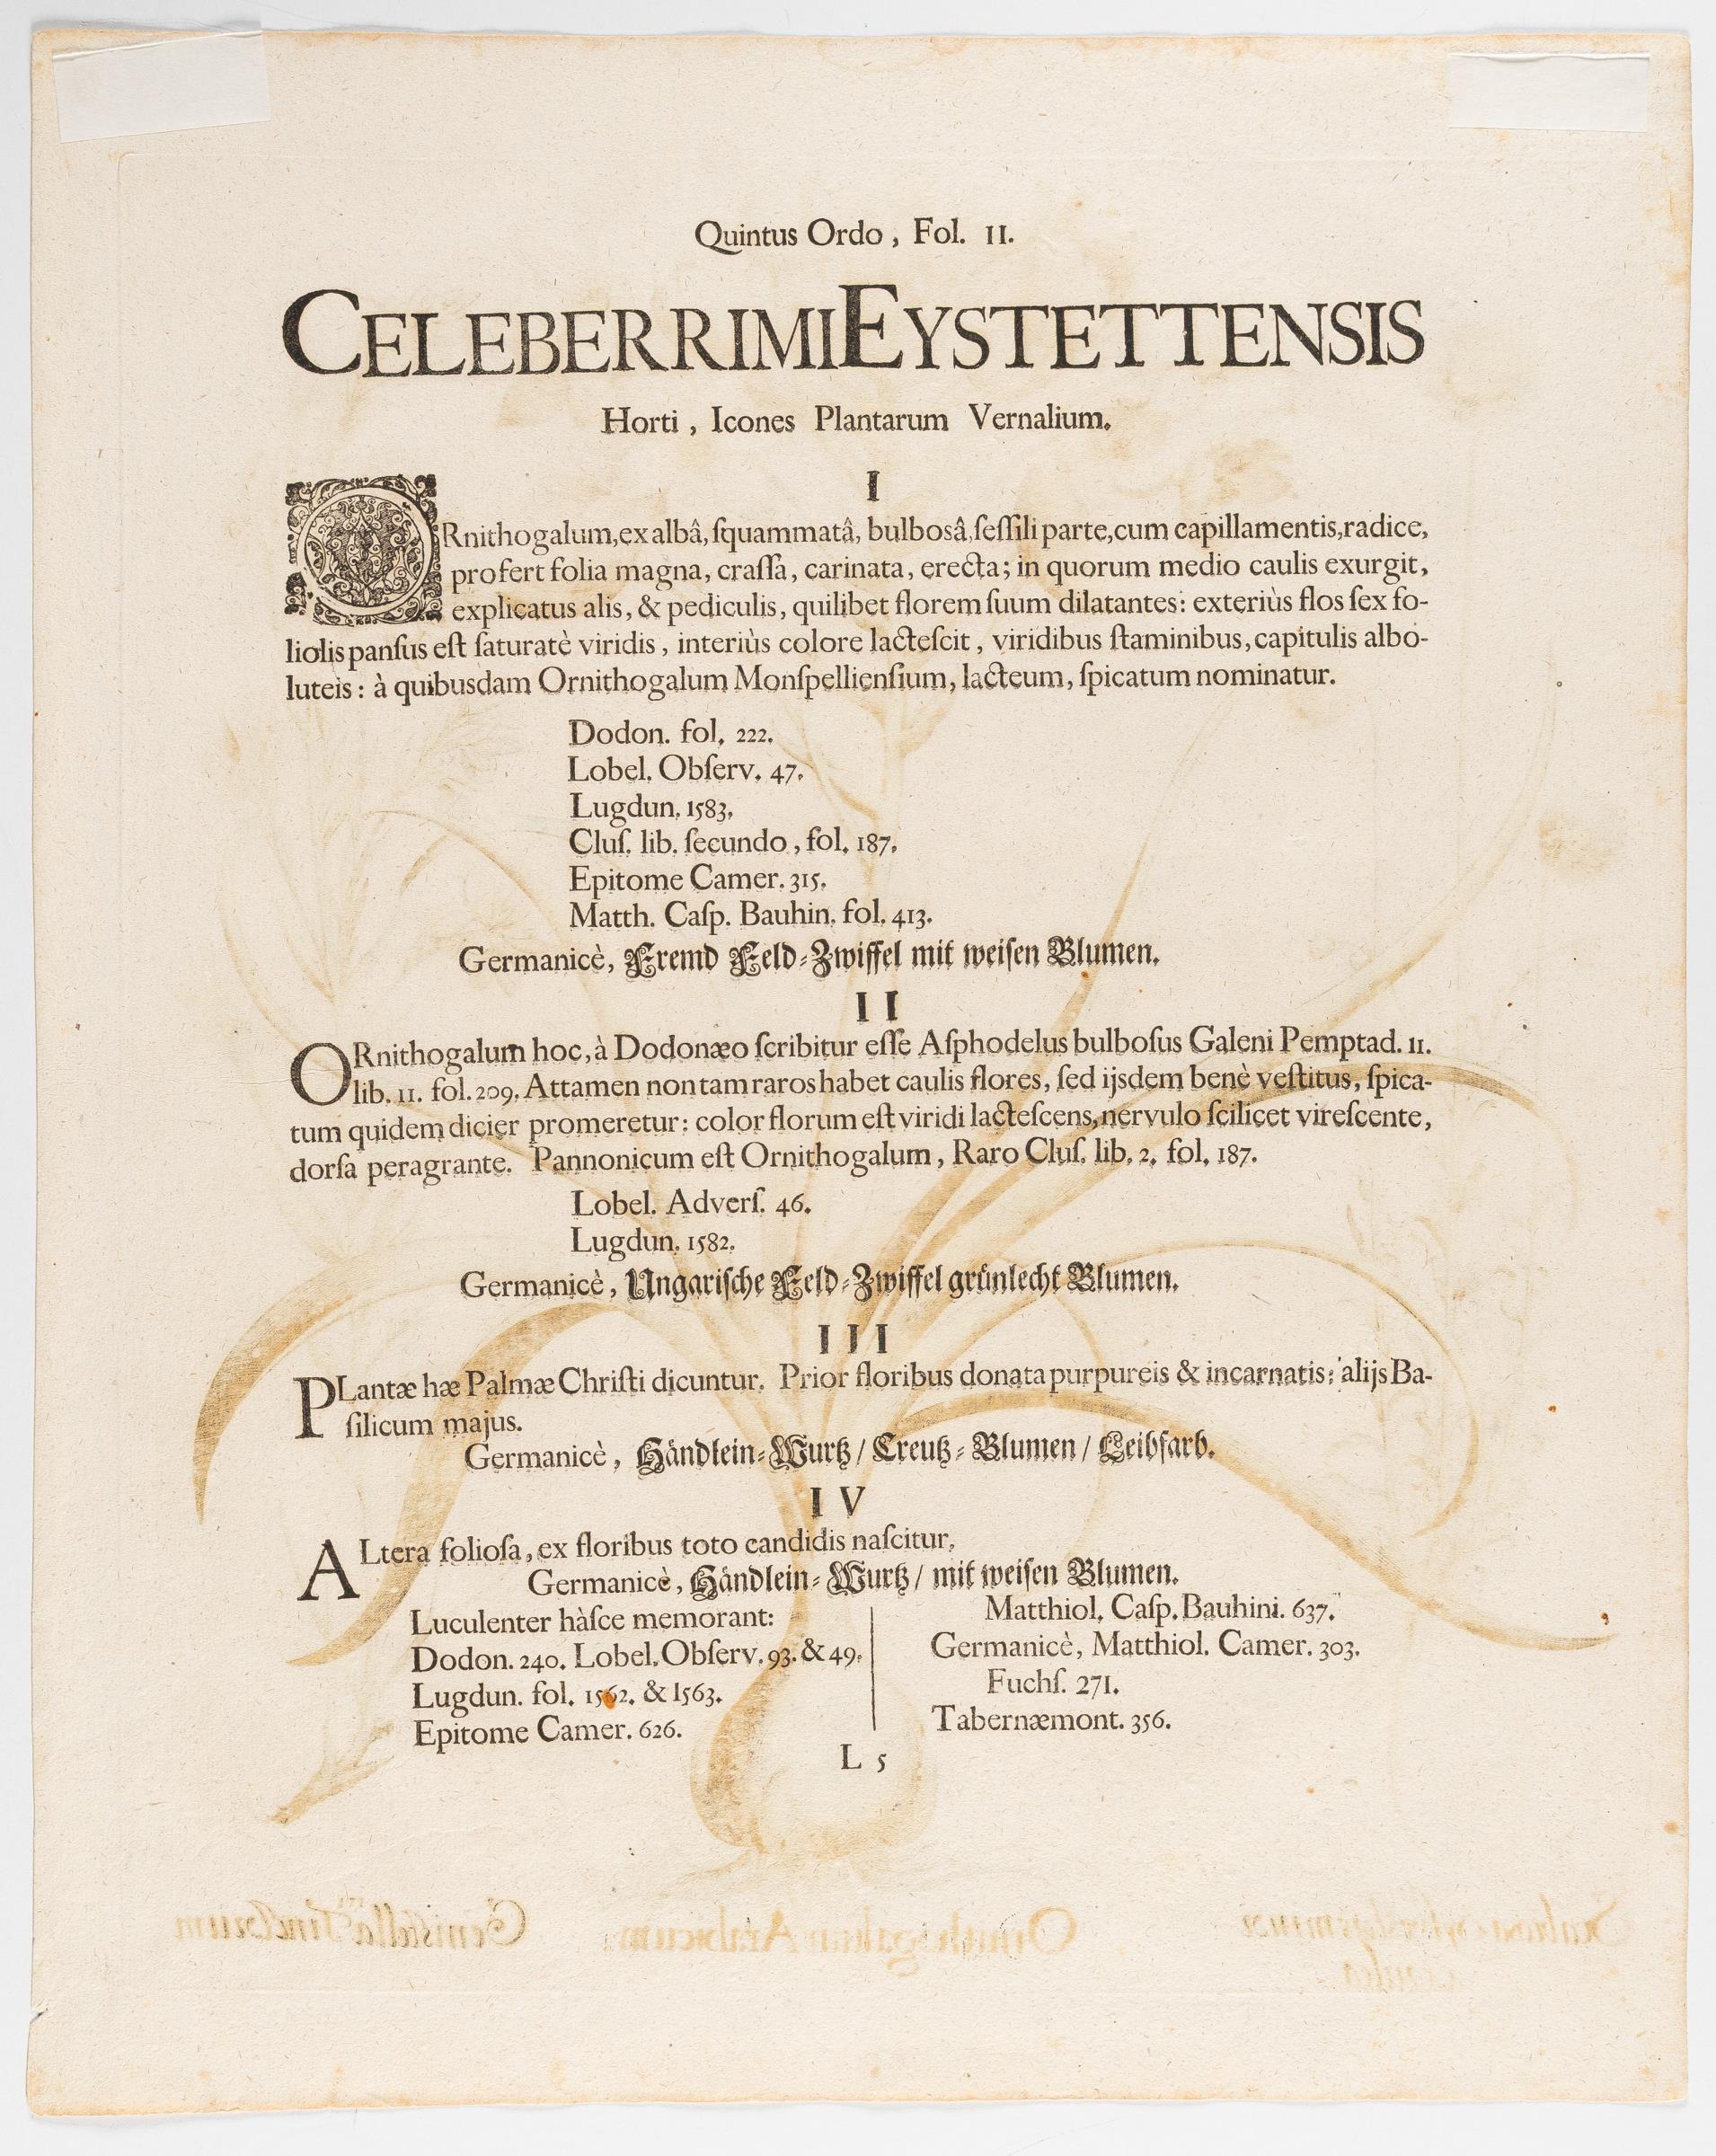 Quintus Ordo, Fol. II.
CELEBERRIMI EYSTETTENSIS
Horti, Icones Plantarum Vernalium.
I
ORnithogalum, ex albâ, ſquammatâ, bulbosâ, ſeſſili parte, cum capillamentis, radice,
profert folia magna, craſſa, carinata, erecta; in quorum medio caulis exurgit,
explicatus alis, & pediculis, quilibet florem ſuum dilatantes: exteriùs flos ſex fo-
liolis panſus eſt ſaturatè viridis, interiùs colore lacteſcit, viridibus ſtaminibus, capitulis albo-
luteis: à quibusdam Ornithogalum Monſpellienſium, lacteum, ſpicatum nominatur.
Dodon. fol. 222.
Lobel. Obſerv. 47.
Lugdun. 1583.
Cluſ. lib. ſecundo, fol. 187.
Epitome Camer. 315.
Matth. Caſp. Bauhin. fol. 413.
Germanicè, Fremd Feld-Zwiffel mit weiſen Blumen.
II
ORnithogalum hoc, à Dodonæo ſcribitur eſſe Aſphodelus bulboſus Galeni Pemptad. II.
lib. II. fol. 209. Attamen non tam raros habet caulis flores, ſed ijsdem benè veſtitus, ſpica-
tum quidem dicier promeretur: color florum eſt viridi lacteſcens, nervulo ſcilicet vireſcente,
dorſa peragrante. Pannonicum eſt Ornithogalum, Raro Cluſ. lib. 2. fol. 187.
Lobel. Adverſ. 46.
Lugdun. 1582.
Germanicè, Ungariſche Feld-Zwiffel grünlecht Blumen.
III
PLantæ hæ Palmæ Chriſti dicuntur. Prior floribus donata purpureis & incarnatis: alijs Ba-
ſilicum majus.
Germanicè, Händlein-Wurtz / Creutz-Blumen / Leibfarb.
IV
ALtera folioſa, ex floribus toto candidis naſcitur.
Germanicè, Händlein-Wurtz / mit weiſen Blumen.
Luculenter hàſce memorant:
Dodon. 240. Lobel. Obſerv. 93. & 49.
Lugdun. fol. 1562. & 1563.
Epitome Camer. 626.
Matthiol. Caſp. Bauhini. 637.
Germanicè, Matthiol. Camer. 303.
Fuchſ. 271.
Tabernæmont. 356.
L 5
Geniſtella Tinctorum
Ornithogalum Arabicum